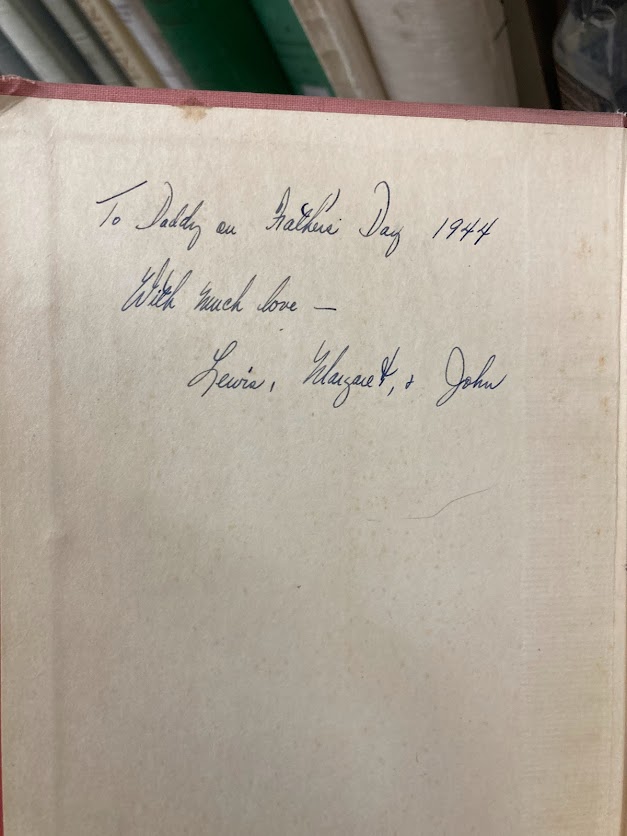 To Daddy on Father's Day 1944
With much love —
Lewis, Margaret, & John